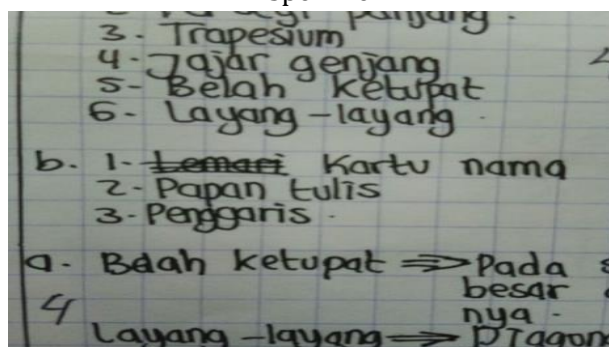 panjang.
3. Trapesium
4. Jajar genjang
5- Belah ketupat
6- Layang-layang.
b. 1- Lemari Kartu nama
2- Papan tulis
3- Penggaris.
a. Belah ketupat ⇒ Pada
4 besar
nya.
Layang-layang ⇒ Diagon